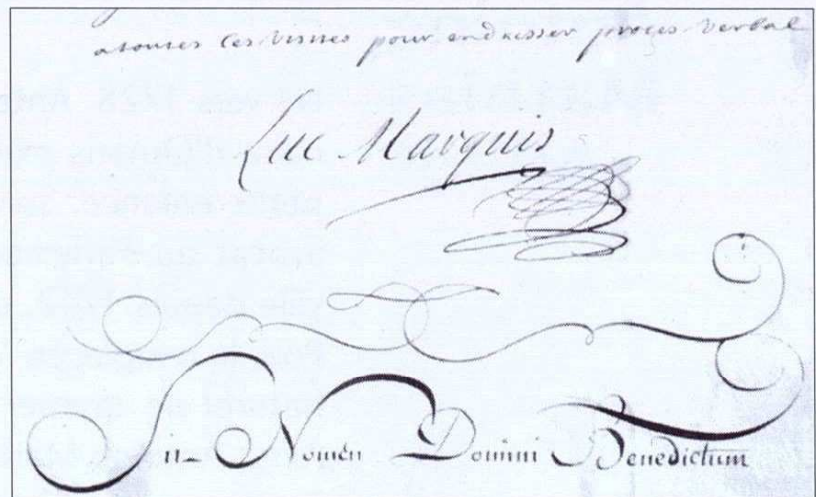 atoutes ces visites pour endresser proces verbal
Luc Marquis
Sit Nomen Domini Benedictum